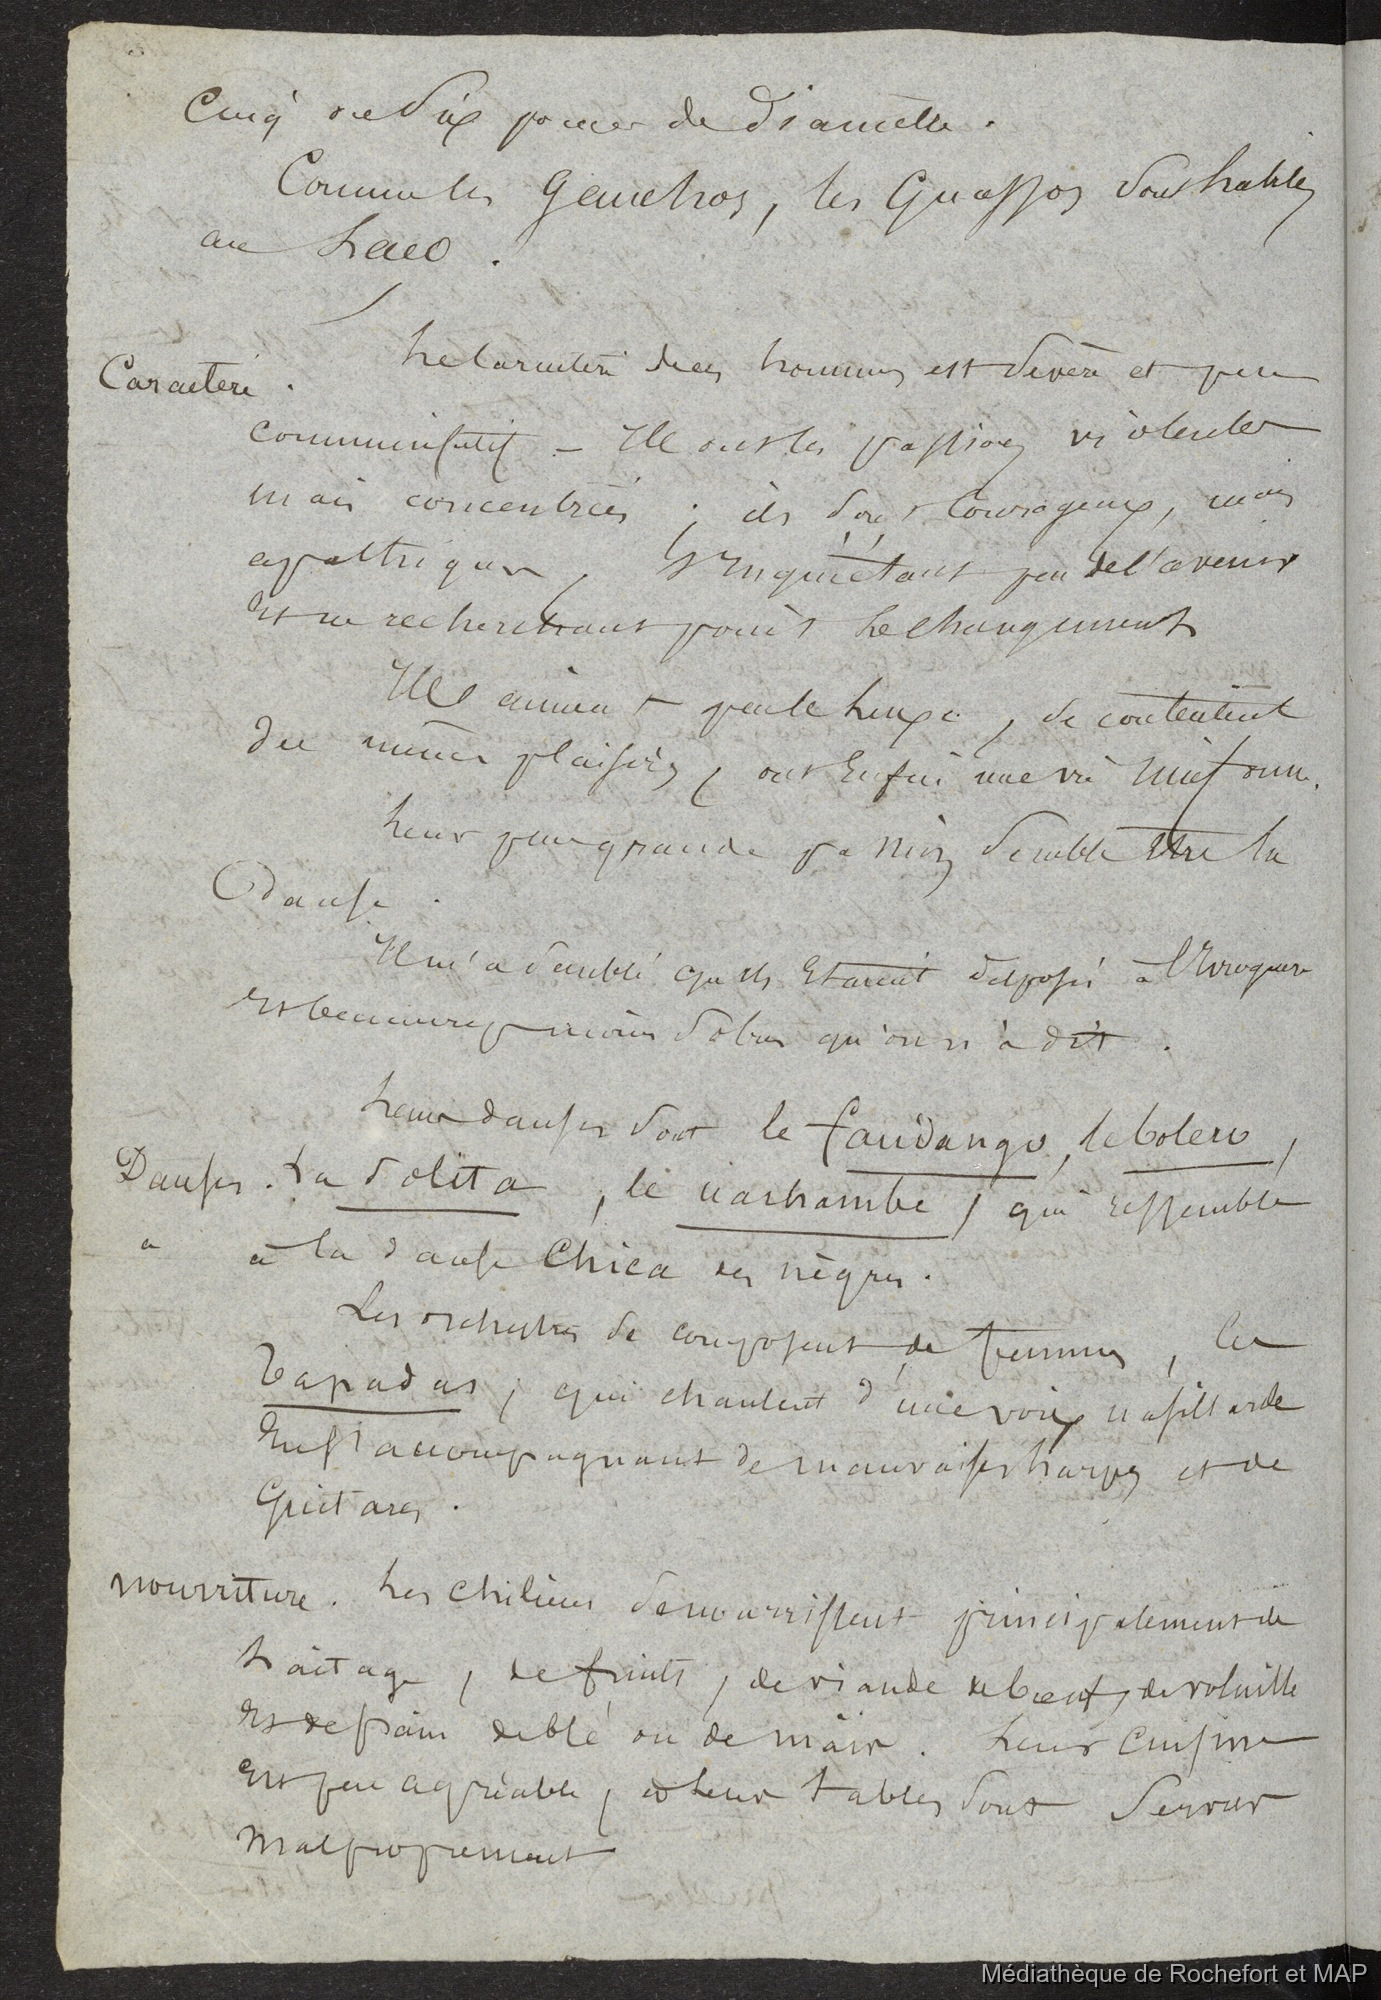 Cinq ou Six pouces de Diamètre.
Comme les Gauchos, les Guassos sont habiles
au Laço.
Caractère.
Le Caractère de ces hommes est sévère et peu
communicatif - Ils ont les passions violentes
mais concentrées ; ils sont Courageux, mais
apathiques, s'inquiétant peu de l'avenir
Et ne recherchant point le changement
Ils aiment peu le Luxe, se contentent
des mêmes plaisirs, ont Enfin une vie uniforme.
Leur plus grande passion semble être la
danse.
Il m'a semblé qu'ils Etaient disposés à l'Ivrognerie
Et beaucoup moins sobres qu'on n'a dit.
Leurs danses sont le fandango, le bolero,
Danses. La solita, le , qui ressemble
à
à la danse Chica des nègres.
Les orchestres se composent de femmes, les
Tapadas, qui chantent d'une voix nasillarde
En s'accompagnant de mauvaises harpes et de
Guitares.
nourriture. Les Chiliens se nourrissent principalement de
Laitage, de fruits, de viande de bœuf, de volaille
Et de pain de blé ou de maïs. Leur Cuisine
Est peu agréable, et leurs tables sont Servies
Malproprement
Médiathèque de Rochefort et MAP